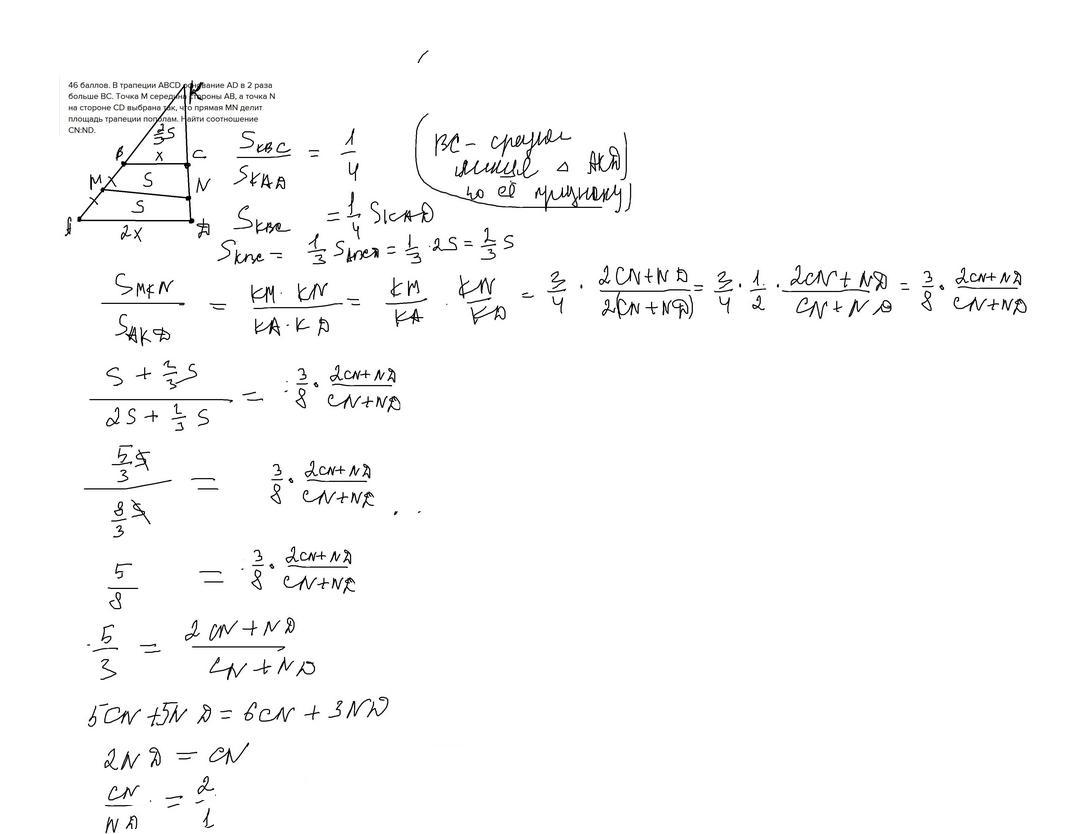 46 баллов. В трапеции ABCD основание AD в 2 раза
больше BC. Точка M середина стороны AB, а точка N
на стороне CD выбрана так, что прямая MN делит
площадь трапеции пополам. Найти соотношение
CN:ND.
K
2/3 S
B x C
M S N
S
A 2x D
S_KBC / S_KAD = 1/4
(BC – средняя
линия △ AKD
по её признаку)
S_KBC = 1/4 S_KAD
S_KBC = 1/3 S_ABCD = 1/3 · 2S = 2/3 S
S_MKN / S_AKD = KM · KN / KA · KD = KM/KA · KN/KD = 3/4 · 2CN+ND / 2(CN+ND) = 3/4 · 1/2 · 2CN+ND / CN+ND = 3/8 · 2CN+ND / CN+ND
S + 2/3 S / 2S + 2/3 S = 3/8 · 2CN+ND / CN+ND
5/3 S / 8/3 S = 3/8 · 2CN+ND / CN+ND
5/8 = 3/8 · 2CN+ND / CN+ND
5/3 = 2CN+ND / CN+ND
5CN+5ND = 6CN + 3ND
2ND = CN
CN/ND = 2/1